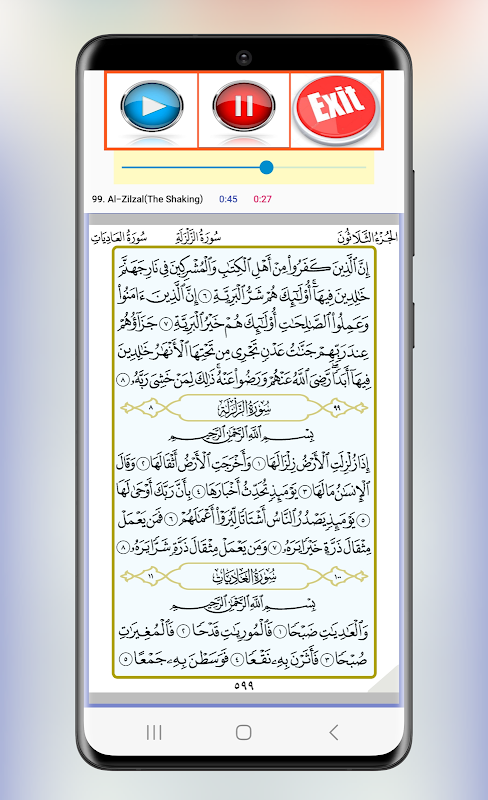 Exit
99. Al-Zilzal(The Shaking) 0:45 0:27
الجُزْءُ الثَّلَاثُونَ سُورَةُ الزَّلْزَلَةِ سُورَةُ العَادِيَاتِ
إِنَّ ٱلَّذِينَ كَفَرُوا۟ مِنْ أَهْلِ ٱلْكِتَٰبِ وَٱلْمُشْرِكِينَ فِى نَارِ جَهَنَّمَ
خَٰلِدِينَ فِيهَآ ۚ أُو۟لَٰٓئِكَ هُمْ شَرُّ ٱلْبَرِيَّةِ ٦ إِنَّ ٱلَّذِينَ ءَامَنُوا۟
وَعَمِلُوا۟ ٱلصَّٰلِحَٰتِ أُو۟لَٰٓئِكَ هُمْ خَيْرُ ٱلْبَرِيَّةِ ٧ جَزَآؤُهُمْ
عِندَ رَبِّهِمْ جَنَّٰتُ عَدْنٍ تَجْرِى مِن تَحْتِهَا ٱلْأَنْهَٰرُ خَٰلِدِينَ
فِيهَآ أَبَدًا ۖ رَّضِىَ ٱللَّهُ عَنْهُمْ وَرَضُوا۟ عَنْهُ ۚ ذَٰلِكَ لِمَنْ خَشِىَ رَبَّهُۥ ٨
٩٩ سُورَةُ الزَّلْزَلَةِ ٨
بِسْمِ ٱللَّهِ ٱلرَّحْمَٰنِ ٱلرَّحِيمِ
إِذَا زُلْزِلَتِ ٱلْأَرْضُ زِلْزَالَهَا ١ وَأَخْرَجَتِ ٱلْأَرْضُ أَثْقَالَهَا ٢ وَقَالَ
ٱلْإِنسَٰنُ مَا لَهَا ٣ يَوْمَئِذٍ تُحَدِّثُ أَخْبَارَهَا ٤ بِأَنَّ رَبَّكَ أَوْحَىٰ لَهَا
٥ يَوْمَئِذٍ يَصْدُرُ ٱلنَّاسُ أَشْتَاتًا لِّيُرَوْا۟ أَعْمَٰلَهُمْ ٦ فَمَن يَعْمَلْ
مِثْقَالَ ذَرَّةٍ خَيْرًا يَرَهُۥ ٧ وَمَن يَعْمَلْ مِثْقَالَ ذَرَّةٍ شَرًّا يَرَهُۥ ٨
١٠٠ سُورَةُ العَادِيَاتِ ١١
بِسْمِ ٱللَّهِ ٱلرَّحْمَٰنِ ٱلرَّحِيمِ
وَٱلْعَٰدِيَٰتِ ضَبْحًا ١ فَٱلْمُورِيَٰتِ قَدْحًا ٢ فَٱلْمُغِيرَٰتِ
صُبْحًا ٣ فَأَثَرْنَ بِهِۦ نَقْعًا ٤ فَوَسَطْنَ بِهِۦ جَمْعًا ٥
٥٩٩